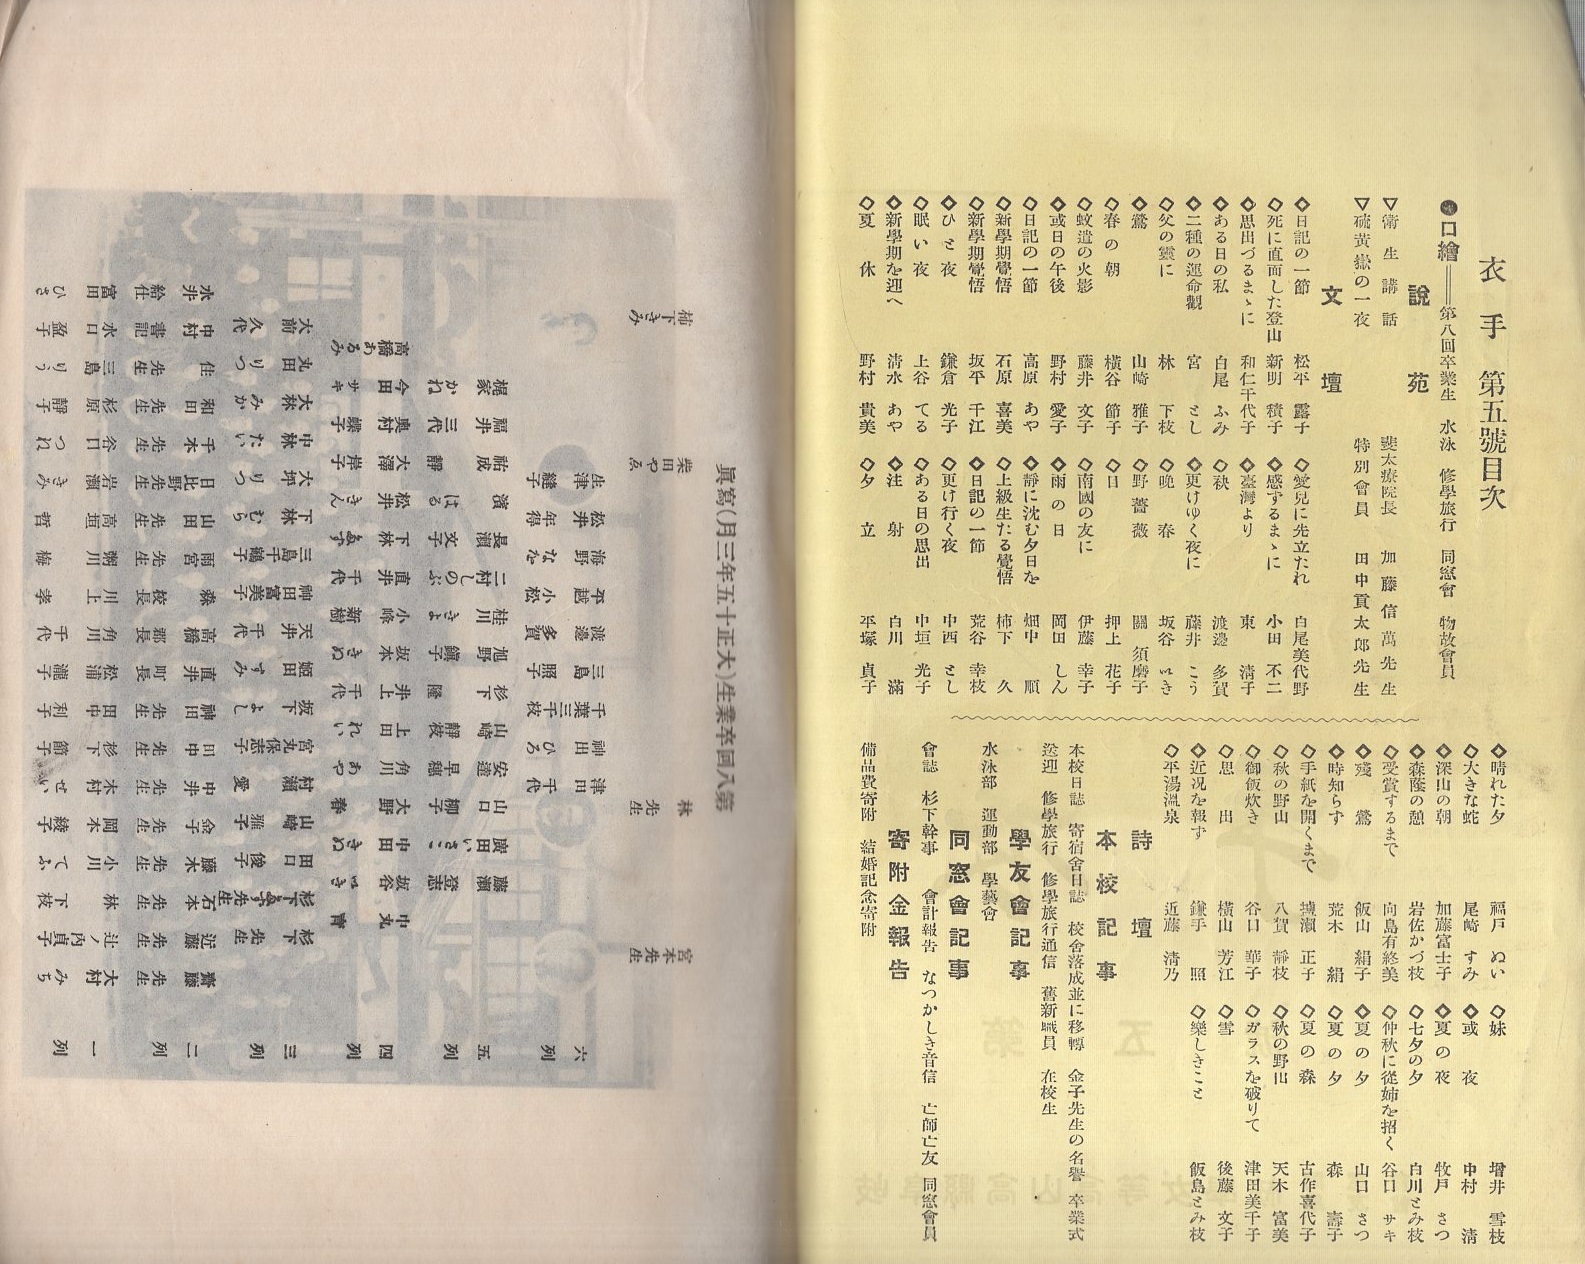 衣手 第五號目次
●口繪══第八回卒業生 水泳 修學旅行 同窓會 物故會員
說苑
▽衛生講話 斐太療院長 加藤信萬先生
▽硫黃嶽の一夜 特別會員 田中貢太郎先生
文壇
◇日記の一節 松平露子
◇死に直面した登山 新明積子
◇思出づるまゝに 和仁千代子
◇ある日の私 白尾ふみ
◇二種の運命觀 宮とし
◇父の靈に 林下枝
◇鶯 山崎雅子
◇春の朝 橫谷節子
◇蚊遣の火影 藤井文子
◇或日の午後 野村愛子
◇日記の一節 高原あや
◇新學期覺悟 石原喜美
◇新學期覺悟 坂平千江
◇ひと夜 鎌倉光子
◇眠い夜 上谷てる
◇新學期を迎へ 淸水あや
◇夏休 野村貴美
◇愛兒に先立たれ 白尾美代野
◇感ずるまゝに 小田不二
◇臺灣より 東淸子
◇秋 渡邊多賀
◇更けゆく夜に 藤井こう
◇晚春 坂谷いき
◇野薔薇 關須磨子
◇日 押上花子
◇南國の友に 伊藤幸子
◇雨の日 岡田しん
◇靜に沈む夕日を 畑中順
◇上級生たる覺悟 柿下久
◇日記の一節 荒谷幸枝
◇更け行く夜 中西とし
◇ある日の思出 中垣光子
◇注射 白川滿
◇夕立 平塚貞子
◇晴れた夕 福戸ぬい
◇大きな蛇 尾崎すみ
◇深山の朝 加藤富士子
◇森蔭の憩 岩佐かづ枝
◇受賞するまで 向島有終美
◇殘鶯 飯山絹子
◇時知らず 荒木絹
◇手紙を開くまで 壚瀨正子
◇秋の野山 八賀靜枝
◇御飯炊き 谷口華子
◇思出 橫山芳江
◇近況を報ず 鎌手照
◇平湯溫泉 近藤淸乃
◇妹 增井雪枝
◇或夜 中村淸
◇夏の夜 牧戸さつ
◇七夕の夕 白川とみ枝
◇仲秋に從姉を招く 谷口サキ
◇夏の夕 山口さつ
◇夏の夕 森壽子
◇夏の森 古作喜代子
◇秋の野山 天木富美
◇ガラスを破りて 津田美千子
◇雪 後藤文子
◇樂しきこと 飯島とみ枝
詩壇
本校記事
本校日誌 寄宿舍日誌 校舍落成並に移轉 金子先生の名譽 卒業式
送迎 修學旅行 修學旅行通信 舊新職員 在校生
學友會記事
水泳部 運動部 學藝會
同窓會記事
會誌 杉下幹事 會計報告 なつかしき音信 亡師亡友 同窓會員
寄附金報告
備品費寄附 結婚記念寄附
第八回卒業生(大正十五年三月)寫眞
柿下きみ 柴田やゑ 林先生 宮本先生
六列 生津繼子 松井年得 海野なを 平越小松 渡邊多賀 三島照子 千葉三千枝 神田ひろ 津田千代
五列 梶家かね 福井三代 祐成靜 濱はる 長瀨文子 二村しのぶ 桂川きよ 旭野鎭子 杉下隆 山崎靜枝 安達早穗 山口柳子 廣田いさこ 藤瀨登志
四列 高橋あるみ 今田サキ 奧村蝶 大澤岸子 松井きん 下林 直井千代 小峰新樹 坂本きぬ 井上千代 上田れい 角川あや 大野春 中田きぬ 坂谷いき 中丸寶
三列 大前久代 丸田りつ 大林みか 中林たい 大坪りつ 下林むら 三島千鶴子 神田富美子 天井千代 姬田すみ 坂下よし 宮丸保志子 村瀨愛 山崎雅子 田口俊子 杉下 先生 杉下先生
二列 水井給仕 中村書記 住先生 和田先生 千木先生 日比野先生 山田先生 雨宮先生 森校長 高橋郡長 直井町長 神田先生 田中先生 中井先生 金子先生 藤木先生 石本先生 近藤先生 齋藤先生
一列 富田ひさ 水口盈子 三島りう 杉原靜子 谷口つね 岩瀨きみ 高垣哲 粥川梅 川上孝 角川千代 松浦瀧子 田中利子 杉下節子 木村せい 岡本綾子 小川てふ 林下枝 辻ノ內貞子 大村みち